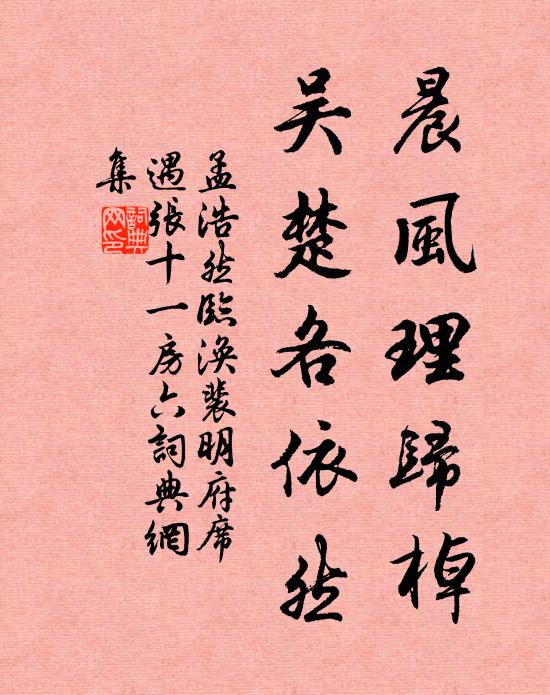 晨風理歸棹
吳楚各依然
孟浩然臨渙裴明府席
遇張十一房六詞典網
集
詞典
网印